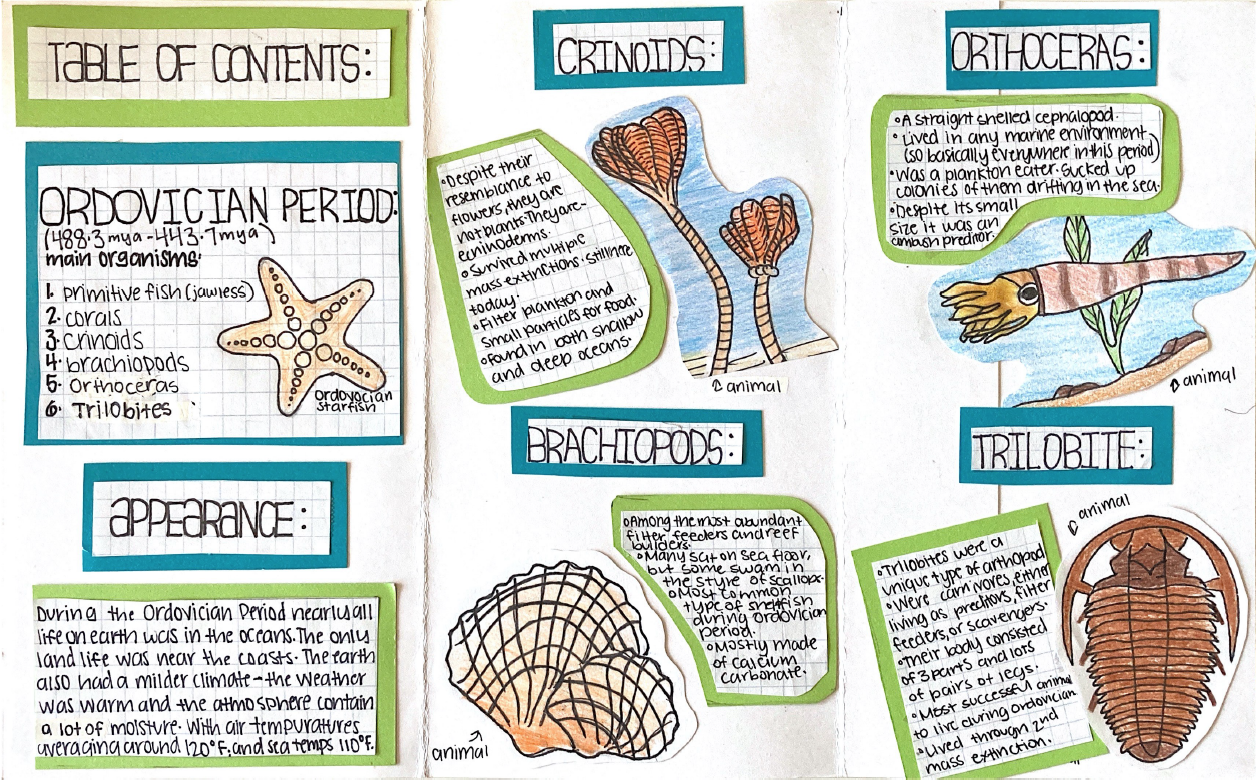 TABLE OF CONTENTS:
ORDOVICIAN PERIOD:
(488.3 mya - 443.7 mya)
main organisms:
1. primitive fish (jawless)
2. corals
3. crinoids
4. brachiopods
5. Orthoceras
6. Trilobites
Ordovocian
starfish
APPEARANCE:
During the Ordovician Period nearly all
life on earth was in the oceans. The only
land life was near the coasts. The earth
also had a milder climate - the weather
was warm and the atmosphere contain
a lot of moisture. With air tempuratures
averaging around 120°F, and sea temps 110°F.
CRINOIDS:
• Despite their
resemblance to
flowers, they are
not plants. They are-
echinoderms.
• Survived multiple
mass extinctions. still here
today.
• Filter plankton and
small particles for food.
• found in both shallow
and deep oceans.
animal
BRACHIOPODS:
• Among the most abundant
filter feeders and reef
builders.
• Many sat on sea floor,
but some swam in
the style of scallops.
• Most common
type of shellfish
during ordovician
period.
• Mostly made
of calcium
carbonate.
animal
ORTHOCERAS:
• A straight shelled cephalopod.
• Lived in any marine environment
(so basically everywhere in this period)
• Was a plankton eater. Sucked up
colonies of them drifting in the sea.
• Despite its small
size it was an
ambush preditor.
animal
TRILOBITE:
animal
• Trilobites were a
unique type of arthopod
• Were carnivores either
living as preditors, filter
feeders, or scavengers.
• Their body consisted
of 3 parts and lots
of pairs of legs.
• Most successful animal
to live during ordovician
• Lived through 2nd
mass extinction.